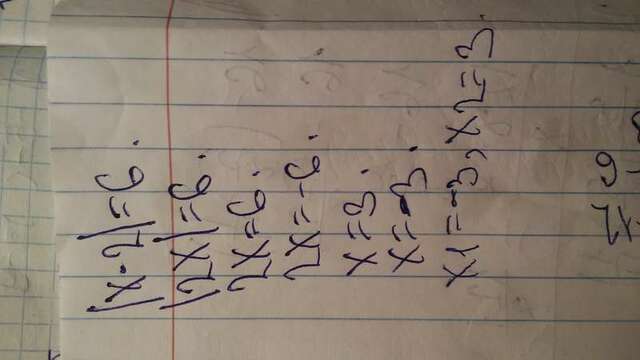 |x·2|=6.
|2x|=6.
2x=6.
2x=-6.
x=3.
x=-3.
x1=-3, x2=3.